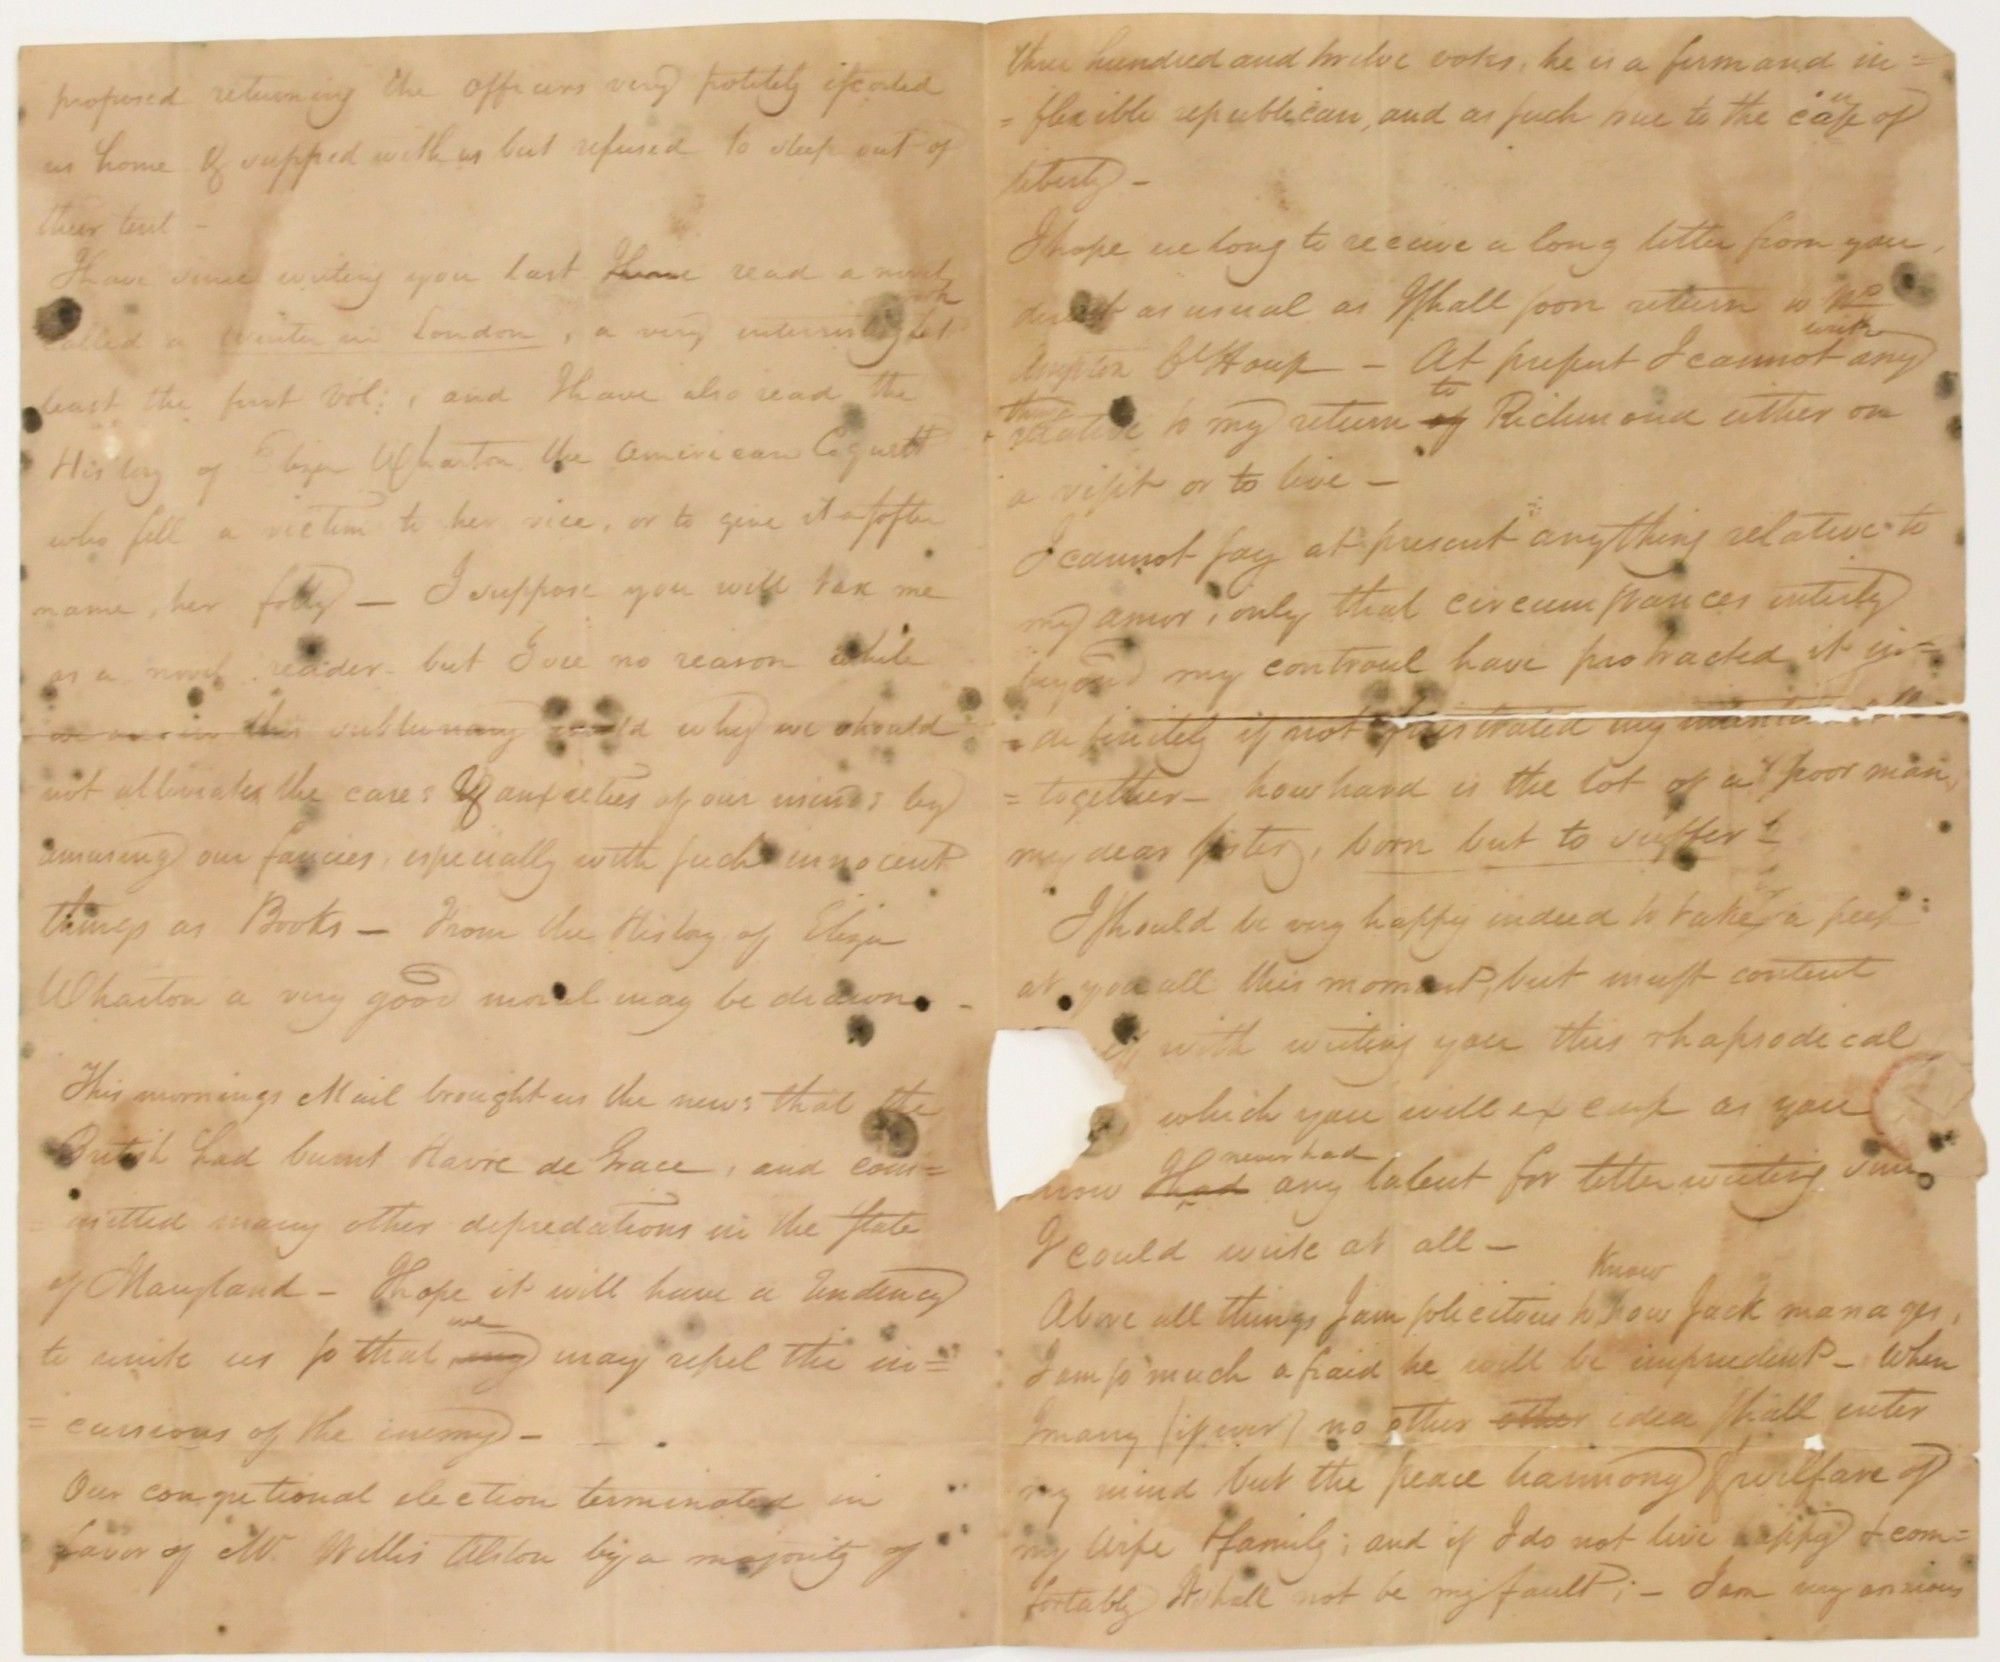 proposed returning the officers very politely escorted
us home & supped with us but refused to sleep out of
their tent –
I have since writing you last I have read a novel
called a Winter in London, a very interresting work at
least the first Vol:, and I have also read the
History of Eliza Wharton the American Coquett
who fell a victim to her vice, or to give it a softer
name, her folly – I suppose you will tax me
as a novel reader – but I see no reason while
we are in this sublunary world why we should
not alleviate the cares & anxieties of our minds by
amusing our fancies, especially with such innocent
things as Books – From the History of Eliza
Wharton a very good moral may be drawn –
This mornings Mail brought us the news that the
British had burnt Havre de Grace, and com=
=mitted many other depredations in the State
of Maryland – I hope it will have a tendency
to unite us so that we may repel the in=
=cursions of the enemy –
Our congretional election terminated in
favor of Mr. Willis Alston by a majority of
three hundred and twelve votes, he is a firm and in=
=flexible republican, and as such true to the cause of
liberty –
I hope ere long to receive a long letter from you,
direct as usual as I shall soon return to No
Ampton Ct House – At present I cannot write any
thing relative to my return to Richmond either on
a visit or to live –
I cannot say at present anything relative to
my amor, only that circumstances entirely
beyond my controul have protracted it in=
=definitely if not frustrated my
=together – how hard is the lot of a poor man,
my dear sister, born but to suffer!
I should be very happy indeed to take a peep
at you all this moment, but must content
with writing you this rhapsodical
which you will excuse as you
know I never had any talent for letter writing since
I could write at all –
Above all things I am solicitous to know how Jack manages,
I am so much afraid he will be imprudent – When
I marry (if ever) no other other idea shall enter
my mind but the peace harmony & wellfare of
my Wife & family; and if I do not live happy & com=
fortably It shall not be my fault; – I am very anxious